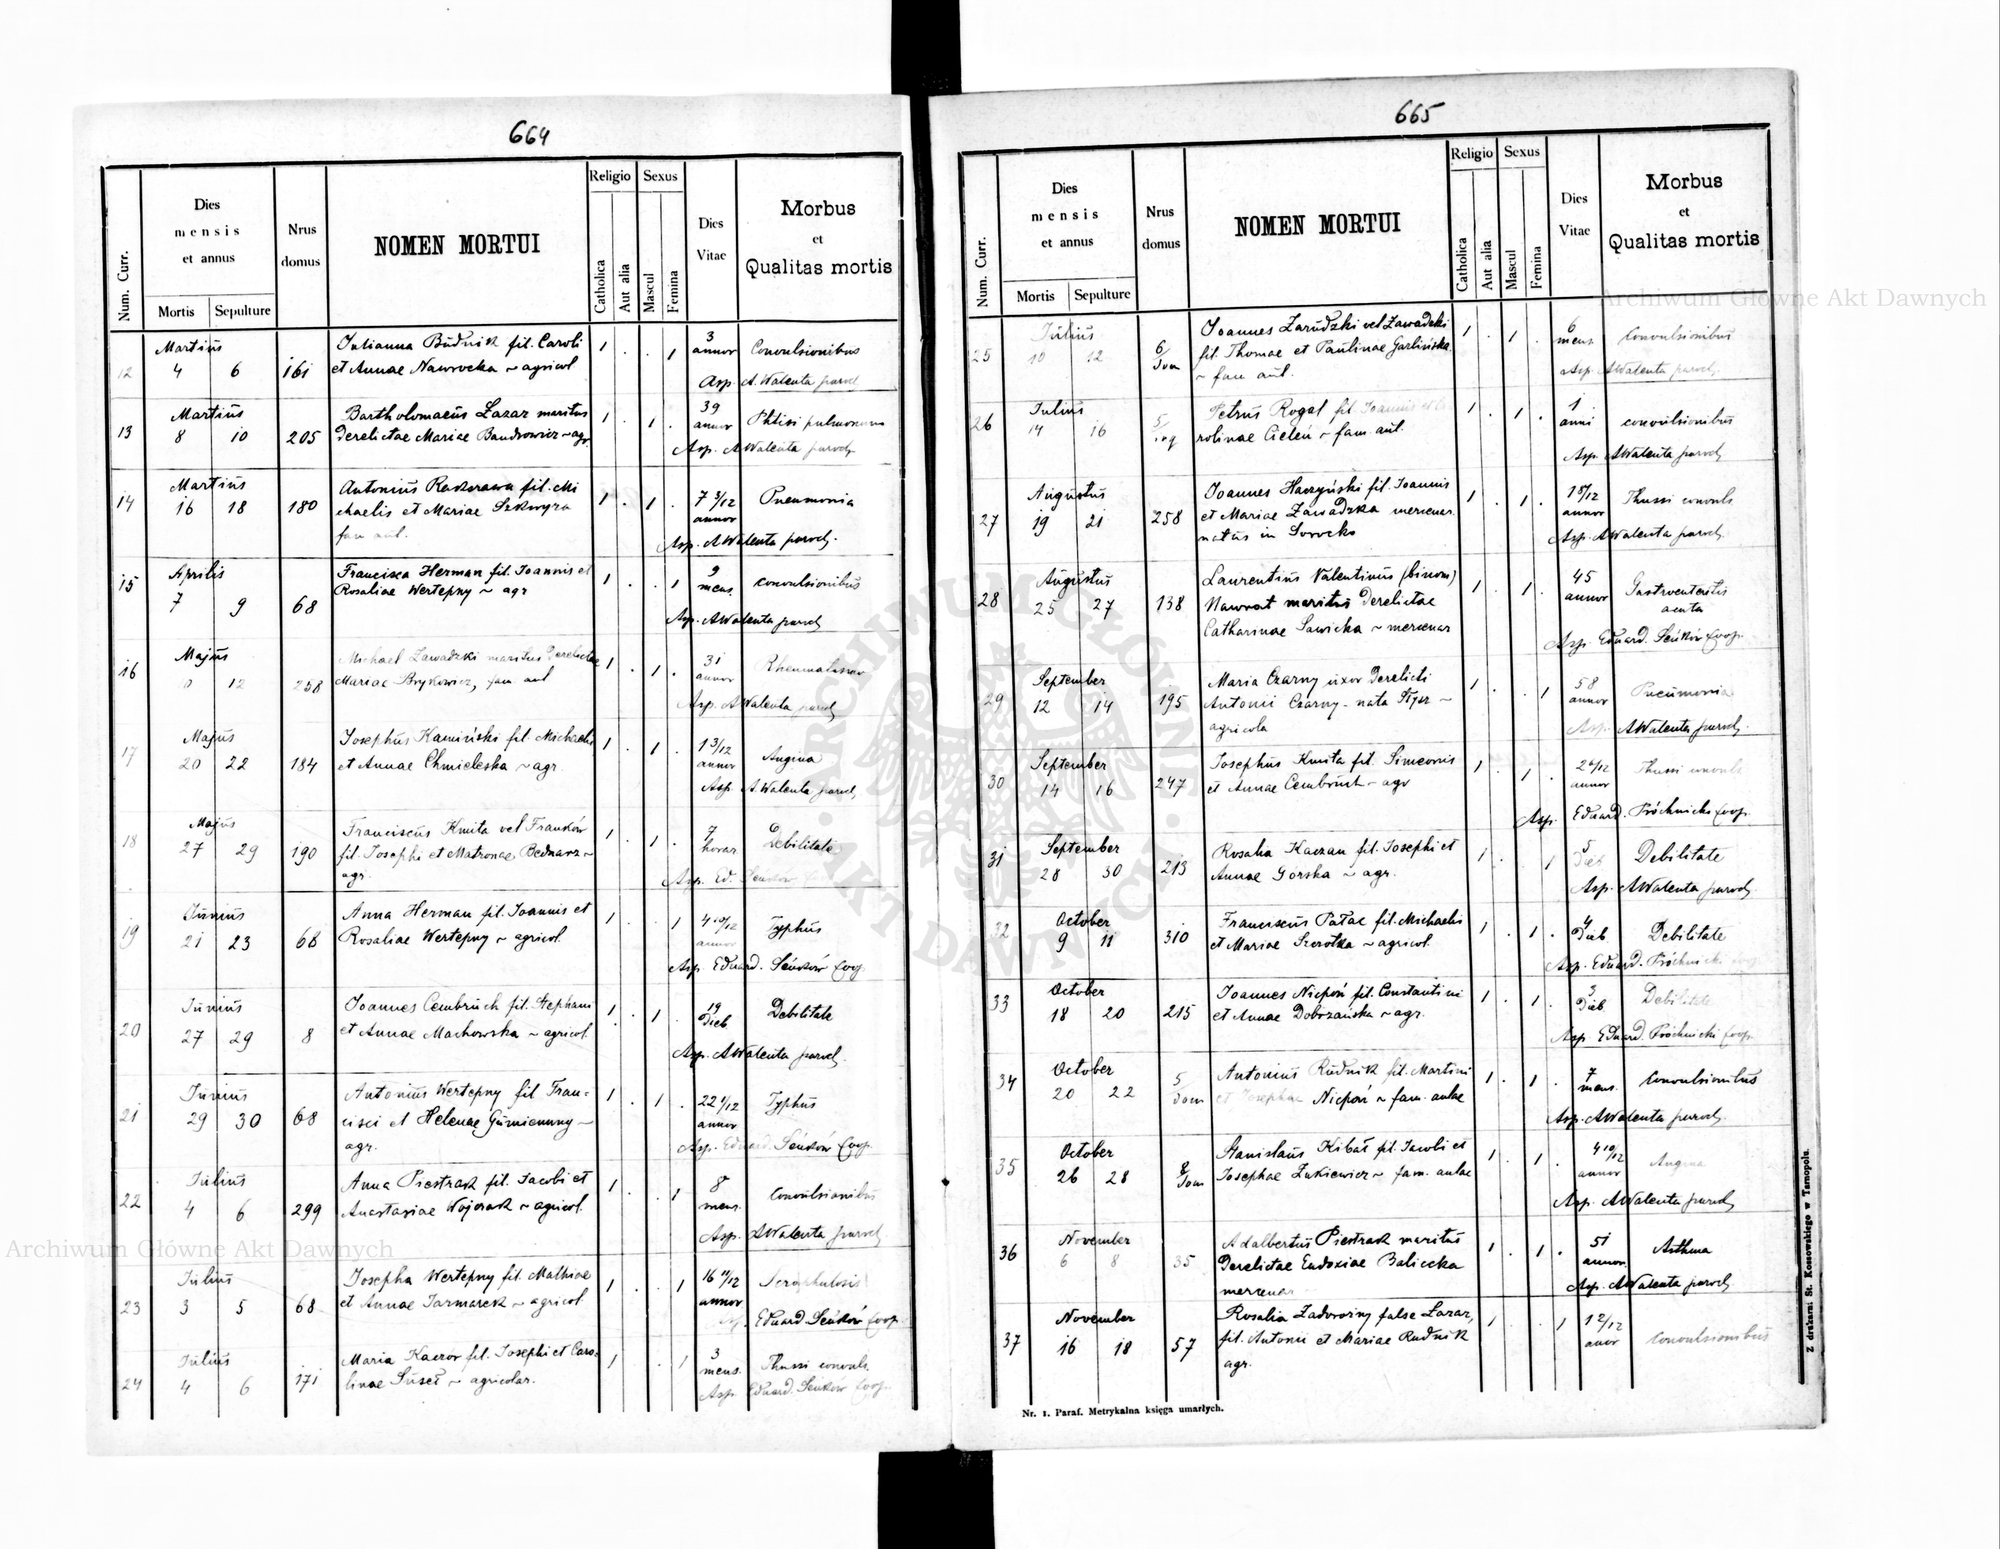 664
Num. Curr.
Dies
mensis
et annus
Mortis
Sepulture
Nrus
domus
NOMEN MORTUI
Religio
Catholica
Aut alia
Sexus
Mascul
Femina
Dies
Vitae
Morbus
et
Qualitas mortis
12 Martius 4 6 161
Julianna Budnik fil. Caroli
et Annae Nawrocka ~ agricol
1 . . 1
3
annor
Convulsionibus
Asp. A. Walenta paroch
13 Martius 8 10 205
Bartholomaeus Łazar maritus
derelictae Mariae Bandrowicz ~ agr
1 . 1 .
39
annor
Phtisi pulmonum
Asp. A Walenta paroch
14 Martius 16 18 180
Antonius fil. Mi
chaelis et Mariae Szkwyra
fam aul.
1 . 1 .
7 3/12
annor
Pneumonia
Asp. A Walenta paroch.
15 Aprilis 7 9 68
Francisca Herman fil. Joannis et
Rosaliae Wertepny ~ agr
1 . . 1
9
mens.
convulsionibus
Asp. A Walenta paroch
16 Majus 12 258
Michael Zawadzki maritus derelictae
Mariae Brykowicz, fam aul
1 . 1 .
31
annor
Asp. A Walenta paroch
17 Majus 20 22 184
Josephus Kamiński fil. Michaelis
et Annae Chmieleska ~ agr.
1 . 1 .
1 3/12
annor
Angina
Asp. A. Walenta paroch
18 Majus 27 29 190
Franciscus Kmita vel Franków
fil. Josephi et Matronae Bednarz ~
agr.
1 . 1 .
7
horar
Debilitate
Asp. Ed. Seńków
19 Junius 21 23 68
Anna Herman fil. Joannis et
Rosaliae Wertepny ~ agricol.
1 . . 1
4 10/12
annor
Typhus
Asp. Eduard. Seńków Coop.
20 Junius 27 29 8
Joannes Cembruch fil. Stephani
et Annae Machowska ~ agricol.
1 . 1 .
19
dieb
Debilitate
Asp. A Walenta paroch.
21 Junius 29 30 68
Antonius Wertepny fil Fran-
cisci et Helenae Gumienny ~
agr.
1 . 1 .
22 1/12
annor
Typhus
Asp. Eduard. Seńków Coop.
22 Julius 4 6 299
Anna Piestrak fil. Jacobi et
Anastasiae Wojorak ~ agricol.
1 . . 1
8
mens.
Convulsionibus
Asp. A Walenta paroch
23 Julius 3 5 68
Josepha Wertepny fil. Mathiae
et Annae Jarmarek ~ agricol
1 . . 1
16 11/12
annor
Scrophulosis
Asp. Eduard Seńków Coop
24 Julius 4 6 171
Maria Kaczor fil. Josephi et Caro-
linae Suseł ~ agricolar.
1 . . 1
3
mens.
Thussi convuls
Asp. Eduard. Seńków Coop.
665
Num. Curr.
Dies
mensis
et annus
Mortis
Sepulture
Nrus
domus
NOMEN MORTUI
Religio
Catholica
Aut alia
Sexus
Mascul
Femina
Dies
Vitae
Morbus
et
Qualitas mortis
25 Julius 10 12 6/dom
Joannes Zarudzki vel Zawadzki
fil. Thomae et Paulinae Garlińska
~ fam aul.
1 . 1 .
6
mens.
Convulsionibus
Asp. A Walenta paroch.
26 Julius 14 16
Petrus Rogal fil. Joannis et Ca
rolinae Cieleń ~ fam. aul.
1 . 1 .
1
anni
convulsionibus
Asp. A Walenta paroch
27 Augustus 19 21 258
Joannes Haczyński fil. Joannis
et Mariae Zawadzka mercenar.
natus in Sorocko
1 . 1 .
1 8/12
annor
Thussi convuls
Asp. A Walenta paroch.
28 Augustus 25 27 138
Laurentius Valentinus (binom)
Nawrot maritus derelictae
Catharinae Sawicka ~ mercenar
1 . 1 .
45
annor
Gastroenteritis
acuta
Asp. Eduard. Seńków Coop.
29 September 12 14 195
Maria Czarny uxor derelicti
Antonii Czarny - nata Styrz ~
agricola
1 . . 1
58
annor
Pneumonia
Asp. A Walenta paroch.
30 September 14 16 247
Josephus Kmita fil. Simeonis
et Annae Cembruch ~ agr
1 . 1 .
2 6/12
annor
Thussi convuls
Asp. Eduard. Próchnicki Coop.
31 September 28 30 213
Rosalia Kaczan fil. Josephi et
Annae Gorska ~ agr.
1 . . 1
5
dieb
Debilitate
Asp. A Walenta paroch.
32 October 9 11 310
Franciscus Pałac fil. Michaelis
et Mariae Szrotka ~ agricol.
1 . 1 .
4
dieb
Debilitate
Asp. Eduard. Próchnicki Coop
33 October 18 20 215
Joannes Niepoń fil. Constantini
et Annae Dobrzańska ~ agr.
1 . 1 .
3
dieb
Debilitate
Asp Eduard. Próchnicki Coop.
34 October 20 22 5/dom
Antonius Rudnik fil. Martini
et Josephae Niepoń ~ fam. aulae
1 . 1 .
7
mens.
Convulsionibus
Asp. A Walenta paroch.
35 October 26 28 8/dom
Stanislaus Kibał fil. Jacobi et
Josephae Łukiewicz ~ fam. aulae
1 . 1 .
4 10/12
annor
Angina
Asp. A Walenta paroch
36 November 6 8 35
Adalbertus Piestrak maritus
derelictae Eudoxiae Balicka
mercenar
1 . 1 .
51
annor.
Asthma
Asp. A Walenta paroch
37 November 16 18 57
Rosalia Zadworny false Łazar,
fil. Antonii et Mariae Rudnik
agr.
1 . . 1
1 2/12
anor
Convulsionibus
Nr. 1. Paraf. Metrykalna księga umarłych.
Z drukarni St. Kossowskiego w Tarnopolu.
Archiwum Główne Akt Dawnych
Archiwum Główne Akt Dawnych
ARCHIWUM GŁÓWNE AKT DAWNYCH